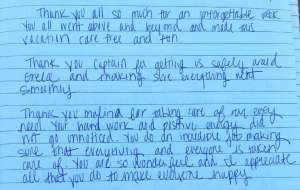 Thank you all so much for an unforgettable week
You all went above and beyond and made this
vacation care free and fun.
Thank you Captain for getting is safely around
Greece and making sure everything went
smoothly
Thank you malina for taking care of our every
need. Your hard work and positive energy did
not go unnoticed. You do an incredible job making
sure that everything and everyone is taken
care of. You are so wonderful and I appreciate
all that you do to make everyone happy